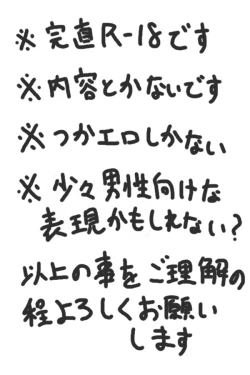 ※完直R-18です
※内容とかないです
※つかエロしかない
※少々男性向けな
表現かもしれない?
以上の事をご理解の
程よろしくお願い
します